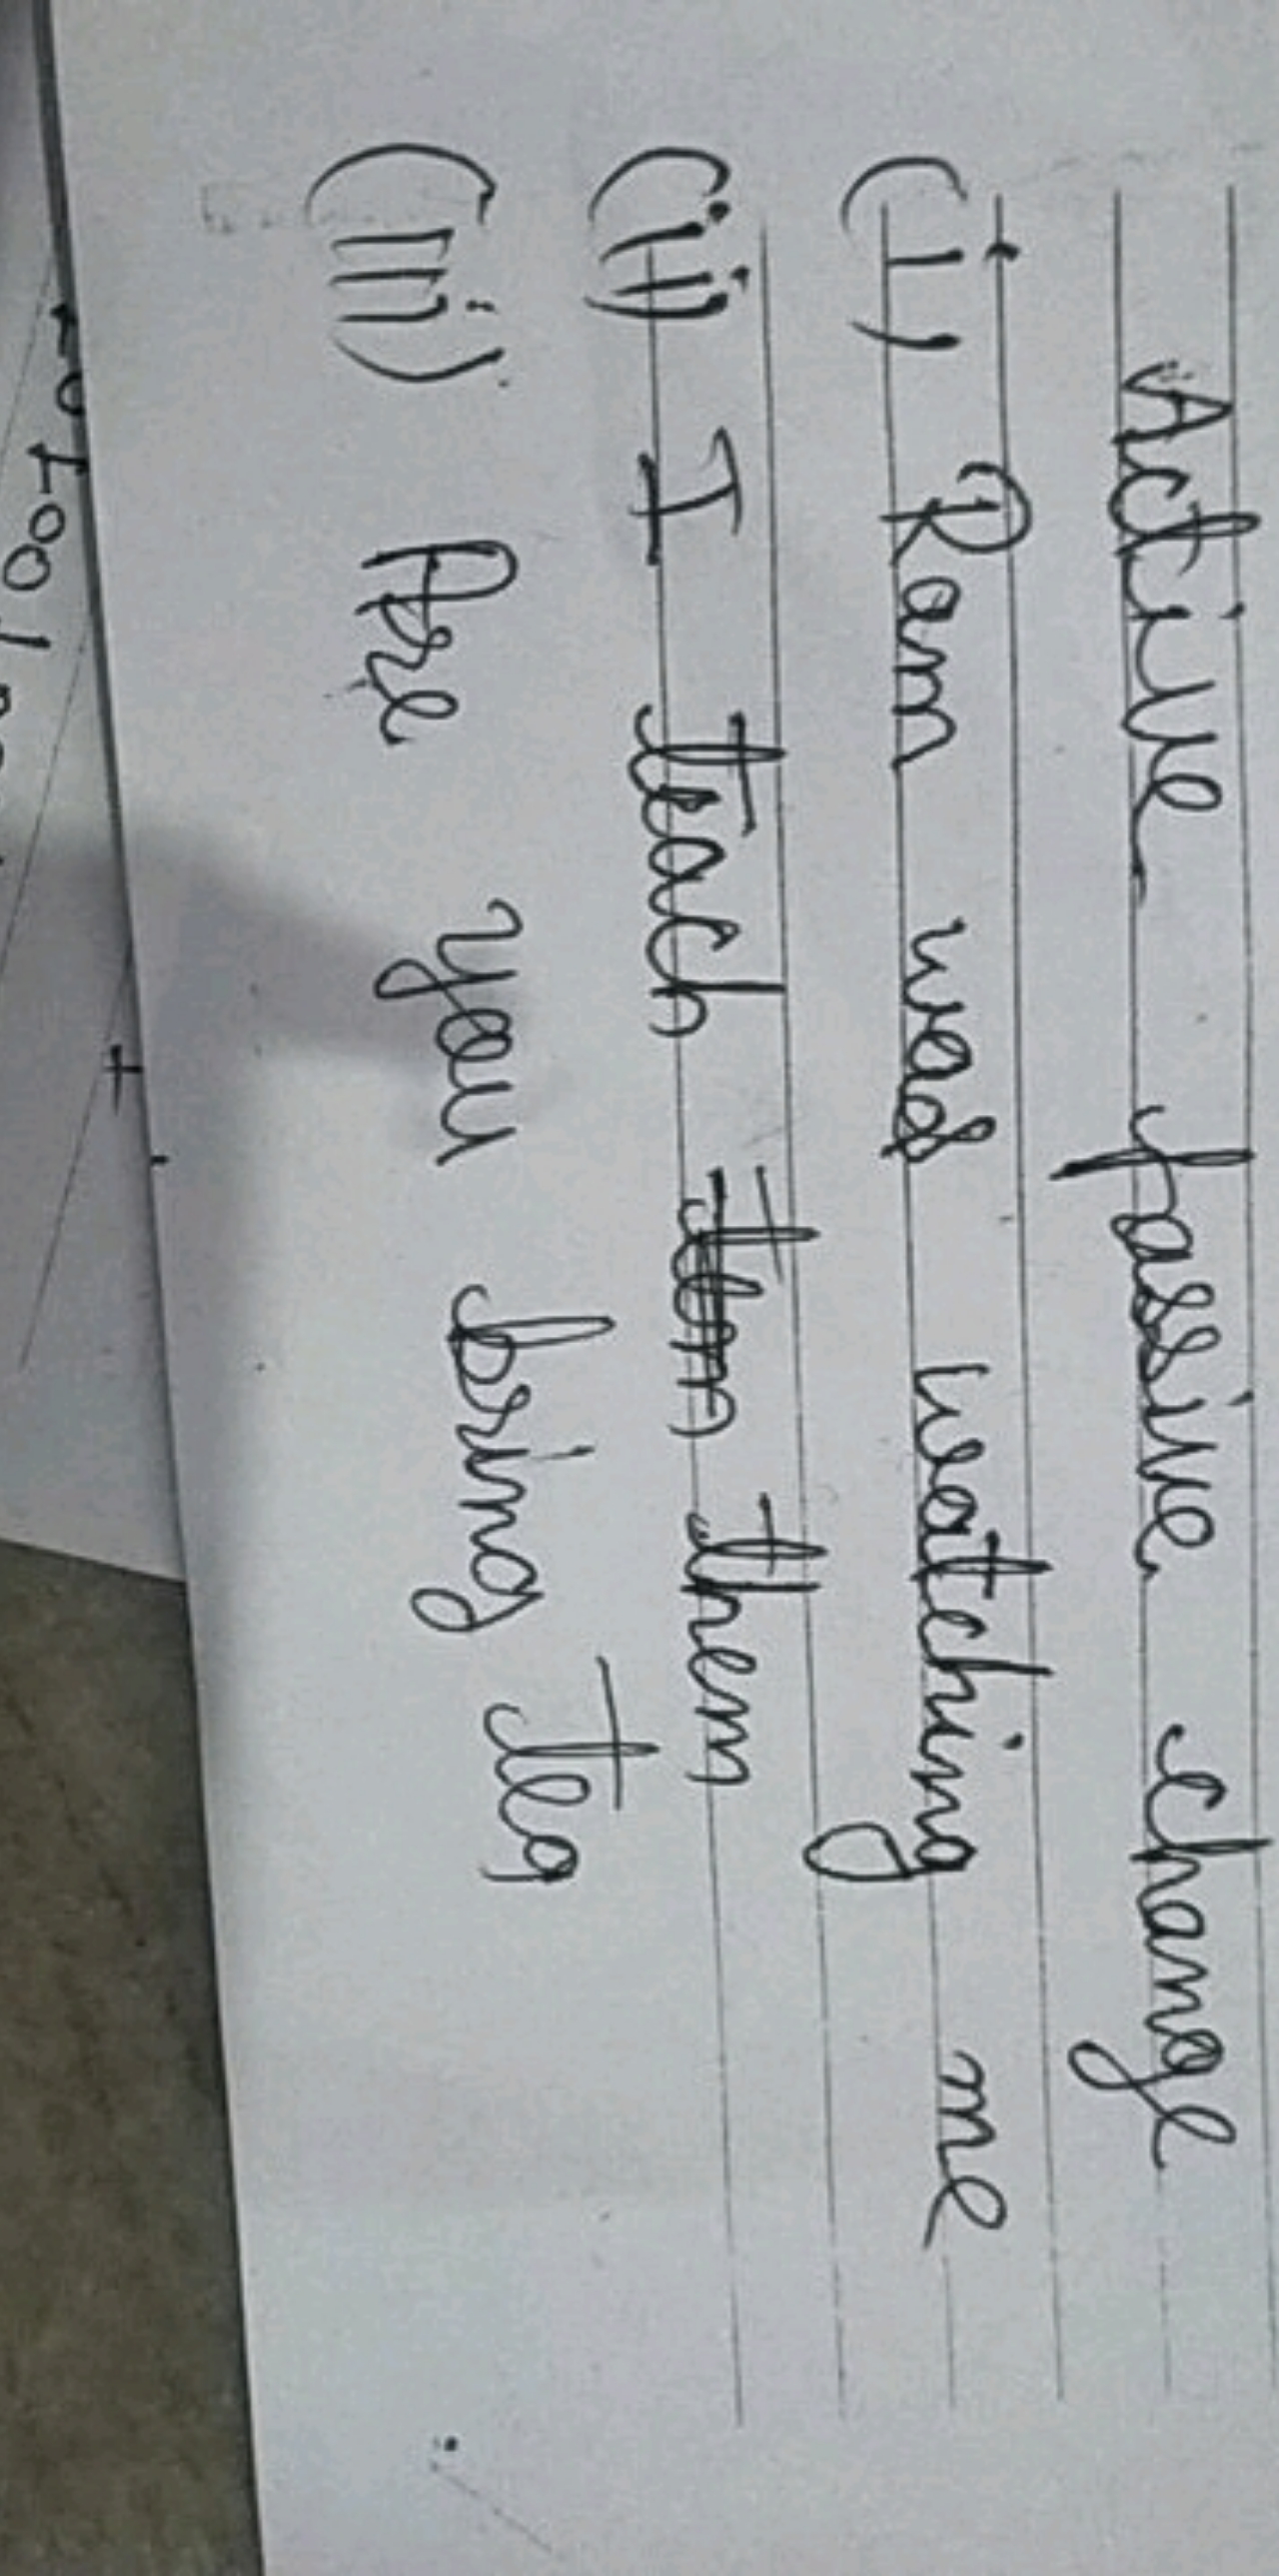 Active passive change
(i) Ram was watching me
(ii) I teach them
(iii) Are you bring Teg